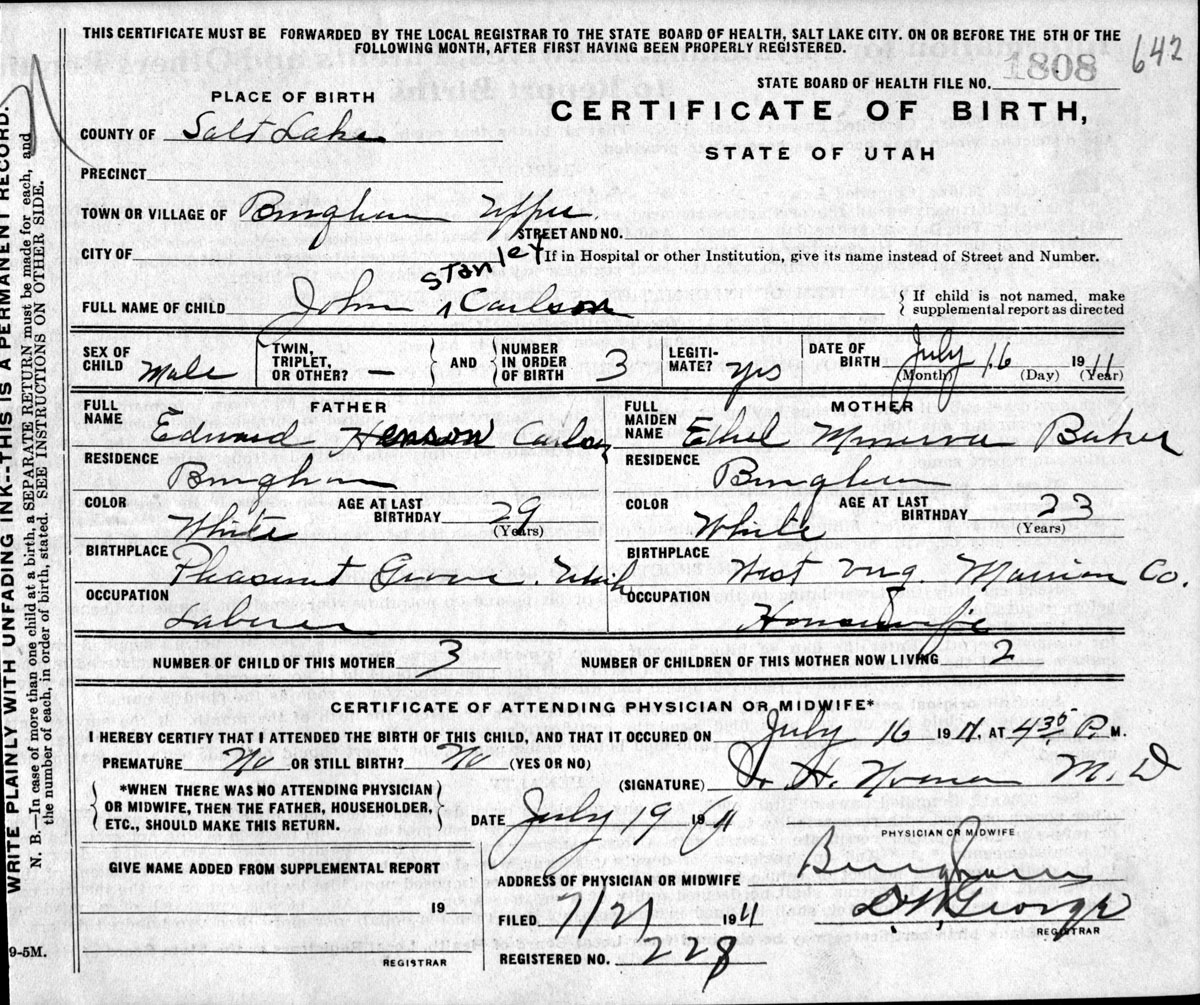 THIS CERTIFICATE MUST BE FORWARDED BY THE LOCAL REGISTRAR TO THE STATE BOARD OF HEALTH, SALT LAKE CITY. ON OR BEFORE THE 5TH OF THE
FOLLOWING MONTH, AFTER FIRST HAVING BEEN PROPERLY REGISTERED.
642
STATE BOARD OF HEALTH FILE NO. 1808
PLACE OF BIRTH
CERTIFICATE OF BIRTH,
STATE OF UTAH
COUNTY OF Salt Lake
PRECINCT
TOWN OR VILLAGE OF Bingham Upper
STREET AND NO.
CITY OF
If in Hospital or other Institution, give its name instead of Street and Number.
STANLEY
FULL NAME OF CHILD John Carlson
If child is not named, make
supplemental report as directed
SEX OF CHILD Male
TWIN, TRIPLET, OR OTHER? — AND NUMBER IN ORDER OF BIRTH 3
LEGITIMATE? yes
DATE OF BIRTH July 16 1911
(Month) (Day) (Year)
FATHER
FULL NAME Edward Henson Carlson
RESIDENCE Bingham
COLOR White AGE AT LAST BIRTHDAY 29 (Years)
BIRTHPLACE Pleasant Grove. Utah
OCCUPATION Laborer
MOTHER
FULL MAIDEN NAME Ethel Minerva Baker
RESIDENCE Bingham
COLOR White AGE AT LAST BIRTHDAY 23 (Years)
BIRTHPLACE West Virg. Marrion Co.
OCCUPATION Housewife
NUMBER OF CHILD OF THIS MOTHER 3 NUMBER OF CHILDREN OF THIS MOTHER NOW LIVING 2
CERTIFICATE OF ATTENDING PHYSICIAN OR MIDWIFE*
I HEREBY CERTIFY THAT I ATTENDED THE BIRTH OF THIS CHILD, AND THAT IT OCCURED ON July 16 1911, AT 4 35 P. M.
PREMATURE No OR STILL BIRTH? No (YES OR NO)
(SIGNATURE) H. M.D
*WHEN THERE WAS NO ATTENDING PHYSICIAN
OR MIDWIFE, THEN THE FATHER, HOUSEHOLDER,
ETC., SHOULD MAKE THIS RETURN.
DATE July 19 1911
PHYSICIAN OR MIDWIFE
GIVE NAME ADDED FROM SUPPLEMENTAL REPORT
19
REGISTRAR
ADDRESS OF PHYSICIAN OR MIDWIFE Bingham
FILED 7/21 1911 George
REGISTRAR
REGISTERED NO. 228
WRITE PLAINLY WITH UNFADING INK--THIS IS A PERMANENT RECORD.
N. B.—In case of more than one child at a birth, a SEPARATE RETURN must be made for each, and
the number of each, in order of birth, stated. SEE INSTRUCTIONS ON OTHER SIDE.
9-5M.